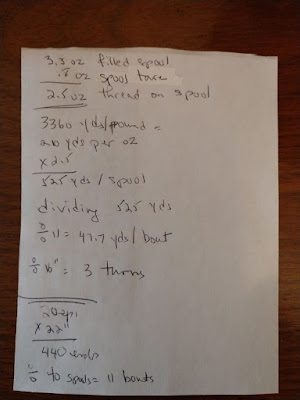 3.3 oz filled spool
.8 oz spool tare
2.5 oz thread on spool
3360 yds/pound =
210 yds per oz
x 2.5
525 yds/spool
dividing 525 yds
÷ 11 = 47.7 yds/bout
÷ 16" = 3 turns
20 epi
x 22"
440 ends
÷ 40 spools = 11 bouts